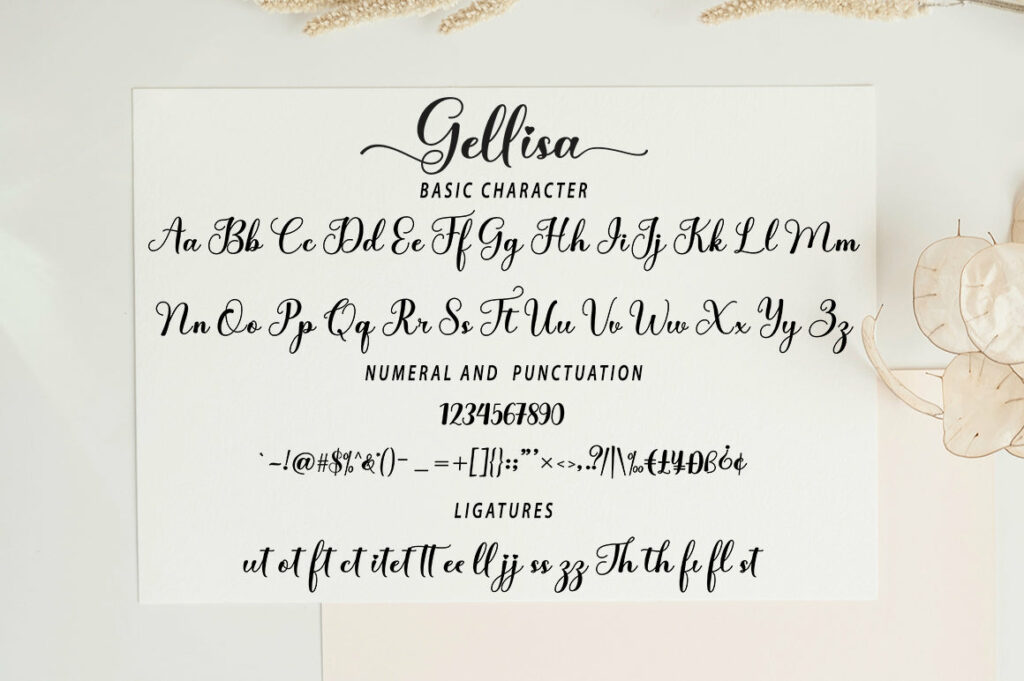 Gellisa
BASIC CHARACTER
Aa Bb Cc Dd Ee Ff Gg Hh Ii Jj Kk Ll Mm
Nn Oo Pp Qq Rr Ss Tt Uu Vv Ww Xx Yy Zz
NUMERAL AND PUNCTUATION
1234567890
`~!@#$%^&*()- _=+[]{}:;"'×<>,.?/|\‰€£¥Đß¿¢
LIGATURES
ut ot ft ct it et tt ee ll jj ss zz Th th fi fl st